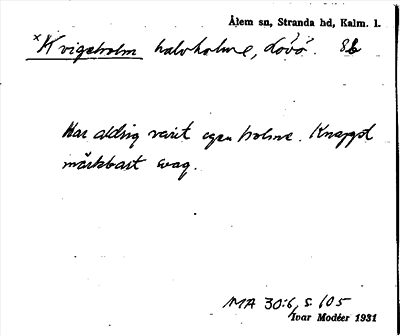 Ålem sn, Stranda hd, Kalm. l.
×Kvigeholm halvholme, Lövö. 8b
Har aldrig varit egen holme. Knappt
märkbart svag.
MA 30:6, s. 105
Ivar Modéer 1931